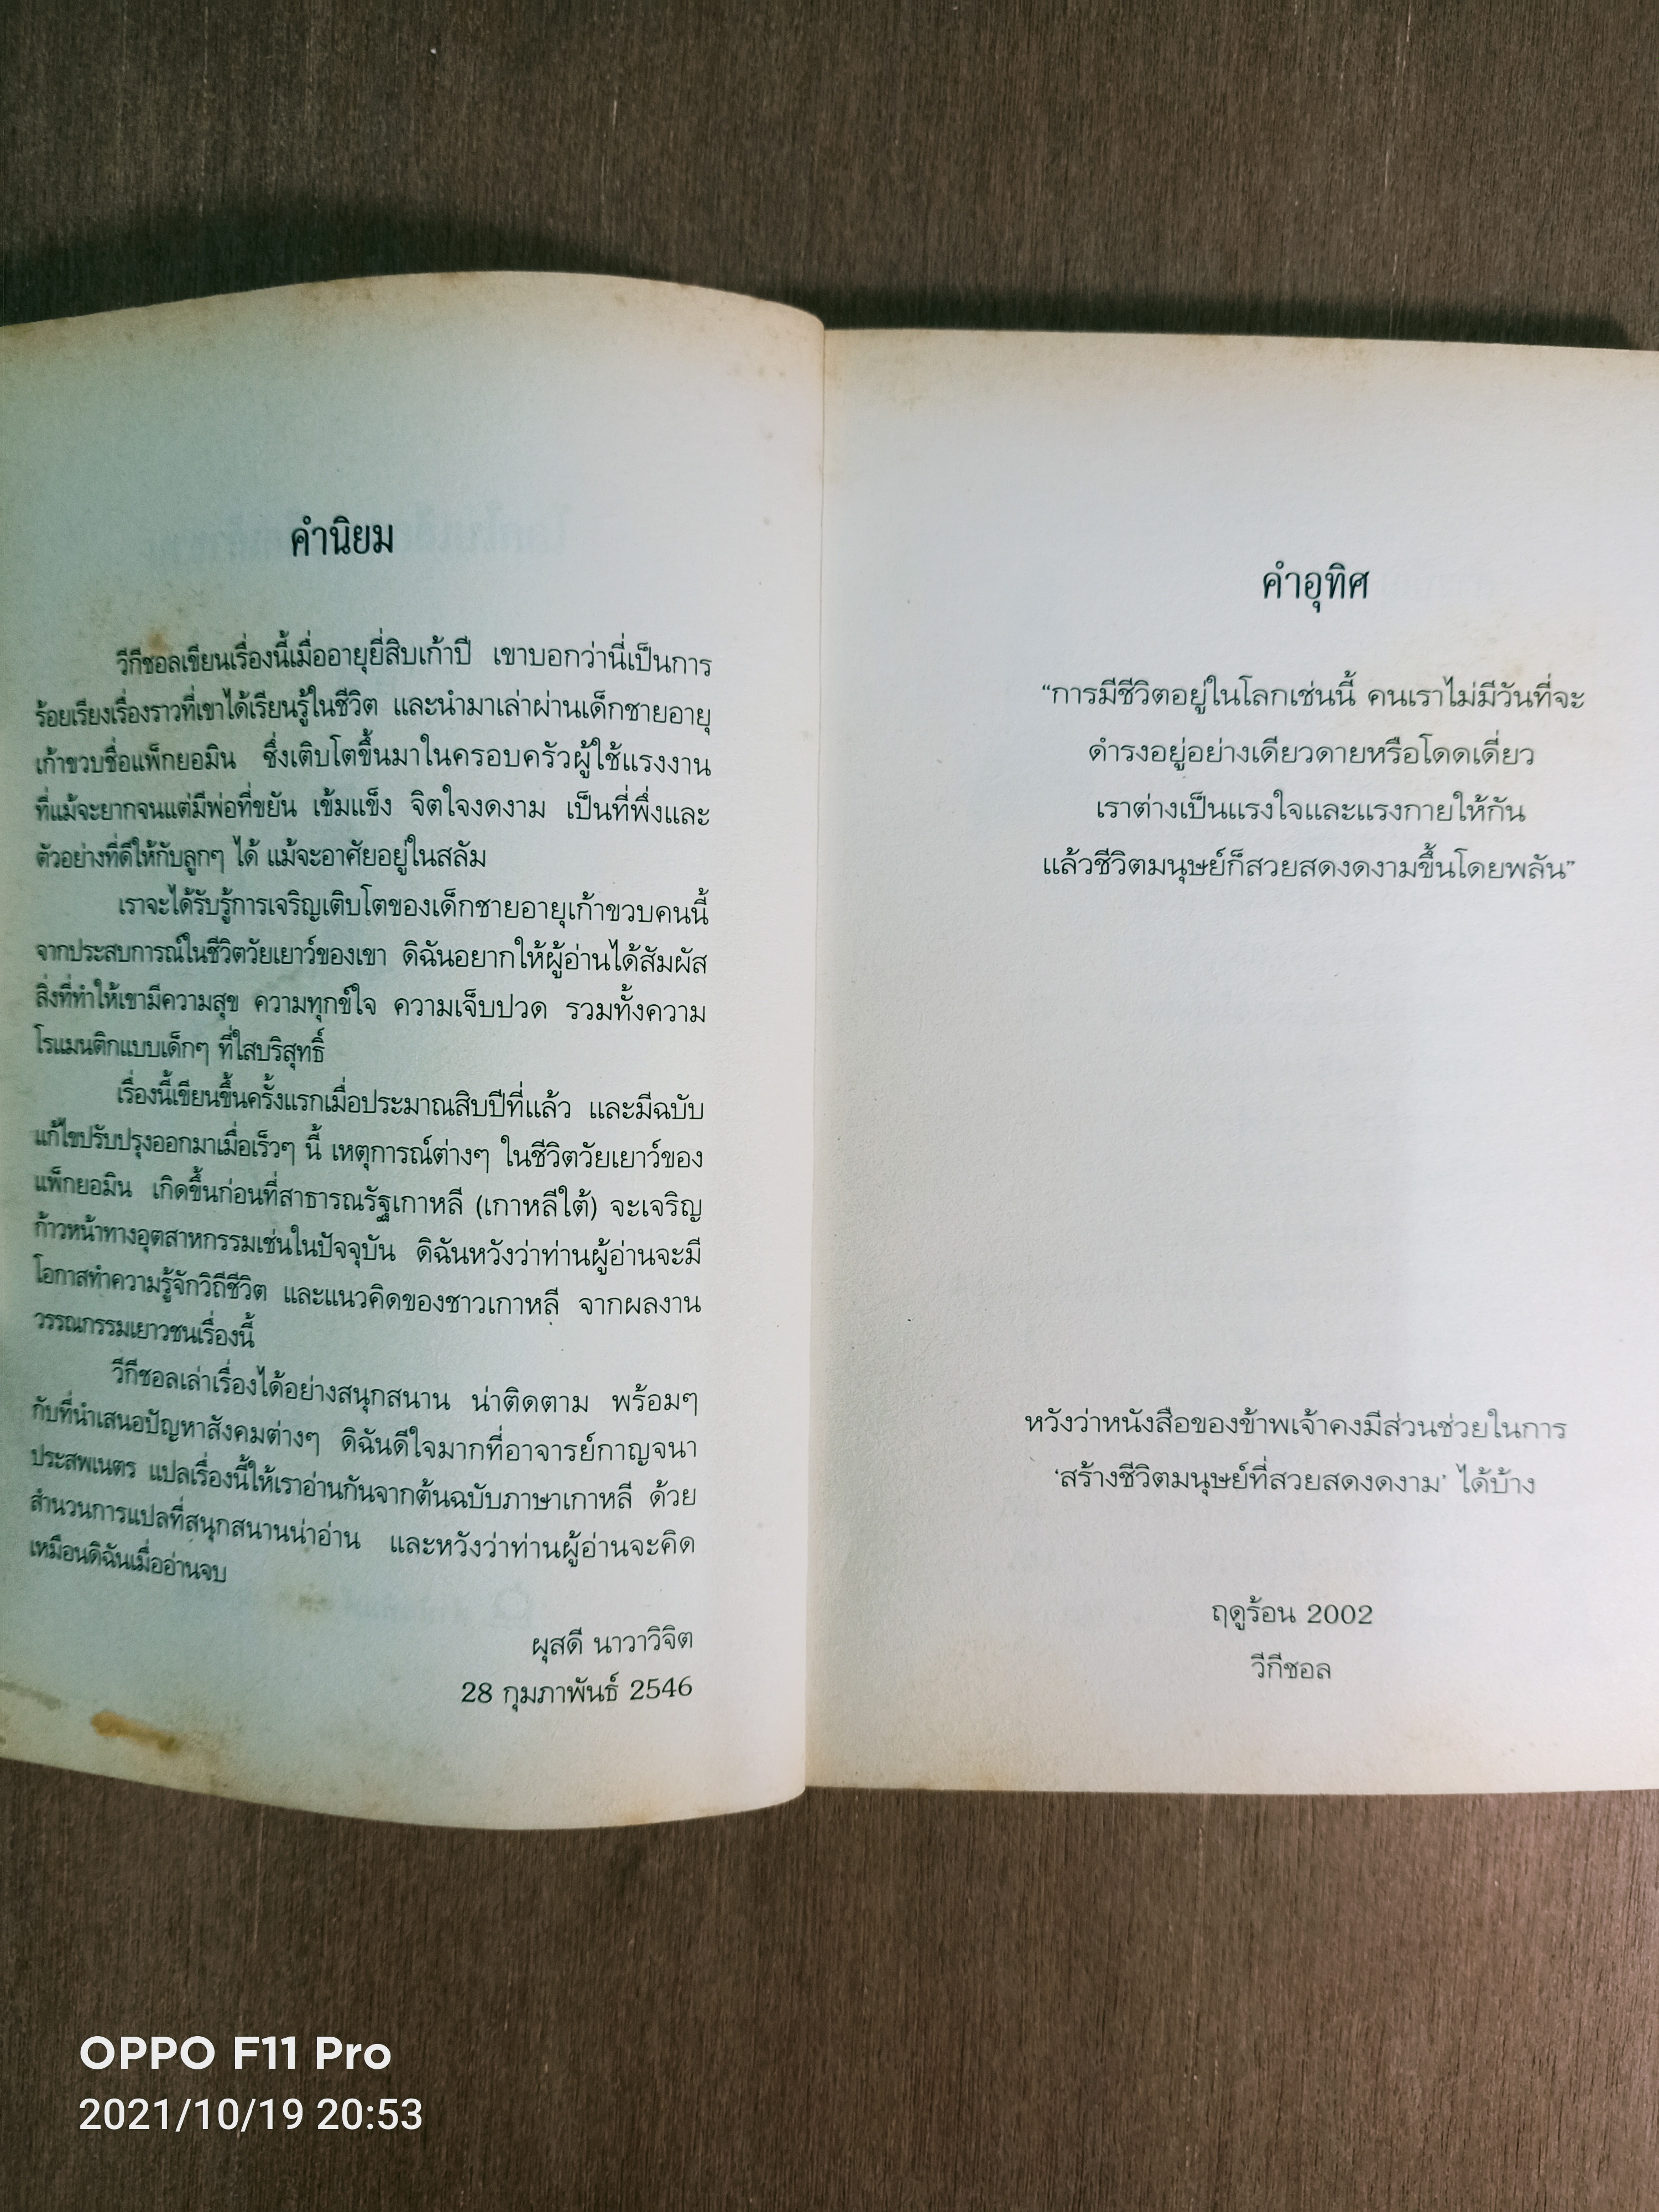 คำนิยม
วีกีชอลเขียนเรื่องนี้เมื่ออายุยี่สิบเก้าปี เขาบอกว่านี่เป็นการ
ร้อยเรียงเรื่องราวที่เขาได้เรียนรู้ในชีวิต และนำมาเล่าผ่านเด็กชายอายุ
เก้าขวบชื่อแพ็กยอมิน ซึ่งเติบโตขึ้นมาในครอบครัวผู้ใช้แรงงาน
ที่แม้จะยากจนแต่มีพ่อที่ขยัน เข้มแข็ง จิตใจงดงาม เป็นที่พึ่งและ
ตัวอย่างที่ดีให้กับลูกๆ ได้ แม้จะอาศัยอยู่ในสลัม
เราจะได้รับรู้การเจริญเติบโตของเด็กชายอายุเก้าขวบคนนี้
จากประสบการณ์ในชีวิตวัยเยาว์ของเขา ดิฉันอยากให้ผู้อ่านได้สัมผัส
สิ่งที่ทำให้เขามีความสุข ความทุกข์ใจ ความเจ็บปวด รวมทั้งความ
โรแมนติกแบบเด็กๆ ที่ใสบริสุทธิ์
เรื่องนี้เขียนขึ้นครั้งแรกเมื่อประมาณสิบปีที่แล้ว และมีฉบับ
แก้ไขปรับปรุงออกมาเมื่อเร็วๆ นี้ เหตุการณ์ต่างๆ ในชีวิตวัยเยาว์ของ
แพ็กยอมิน เกิดขึ้นก่อนที่สาธารณรัฐเกาหลี (เกาหลีใต้) จะเจริญ
ก้าวหน้าทางอุตสาหกรรมเช่นในปัจจุบัน ดิฉันหวังว่าท่านผู้อ่านจะมี
โอกาสทำความรู้จักวิถีชีวิต และแนวคิดของชาวเกาหลี จากผลงาน
วรรณกรรมเยาวชนเรื่องนี้
วีกีชอลเล่าเรื่องได้อย่างสนุกสนาน น่าติดตาม พร้อมๆ
กับที่นำเสนอปัญหาสังคมต่างๆ ดิฉันดีใจมากที่อาจารย์กาญจนา
ประสพเนตร แปลเรื่องนี้ให้เราอ่านกันจากต้นฉบับภาษาเกาหลี ด้วย
สำนวนการแปลที่สนุกสนานน่าอ่าน และหวังว่าท่านผู้อ่านจะคิด
เหมือนดิฉันเมื่ออ่านจบ
ผุสดี นาวาวิจิต
28 กุมภาพันธ์ 2546
คำอุทิศ
“การมีชีวิตอยู่ในโลกเช่นนี้ คนเราไม่มีวันที่จะ
ดำรงอยู่อย่างเดียวดายหรือโดดเดี่ยว
เราต่างเป็นแรงใจและแรงกายให้กัน
แล้วชีวิตมนุษย์ก็สวยสดงดงามขึ้นโดยพลัน”
หวังว่าหนังสือของข้าพเจ้าคงมีส่วนช่วยในการ
‘สร้างชีวิตมนุษย์ที่สวยสดงดงาม’ ได้บ้าง
ฤดูร้อน 2002
วีกีชอล
OPPO F11 Pro
2021/10/19 20:53